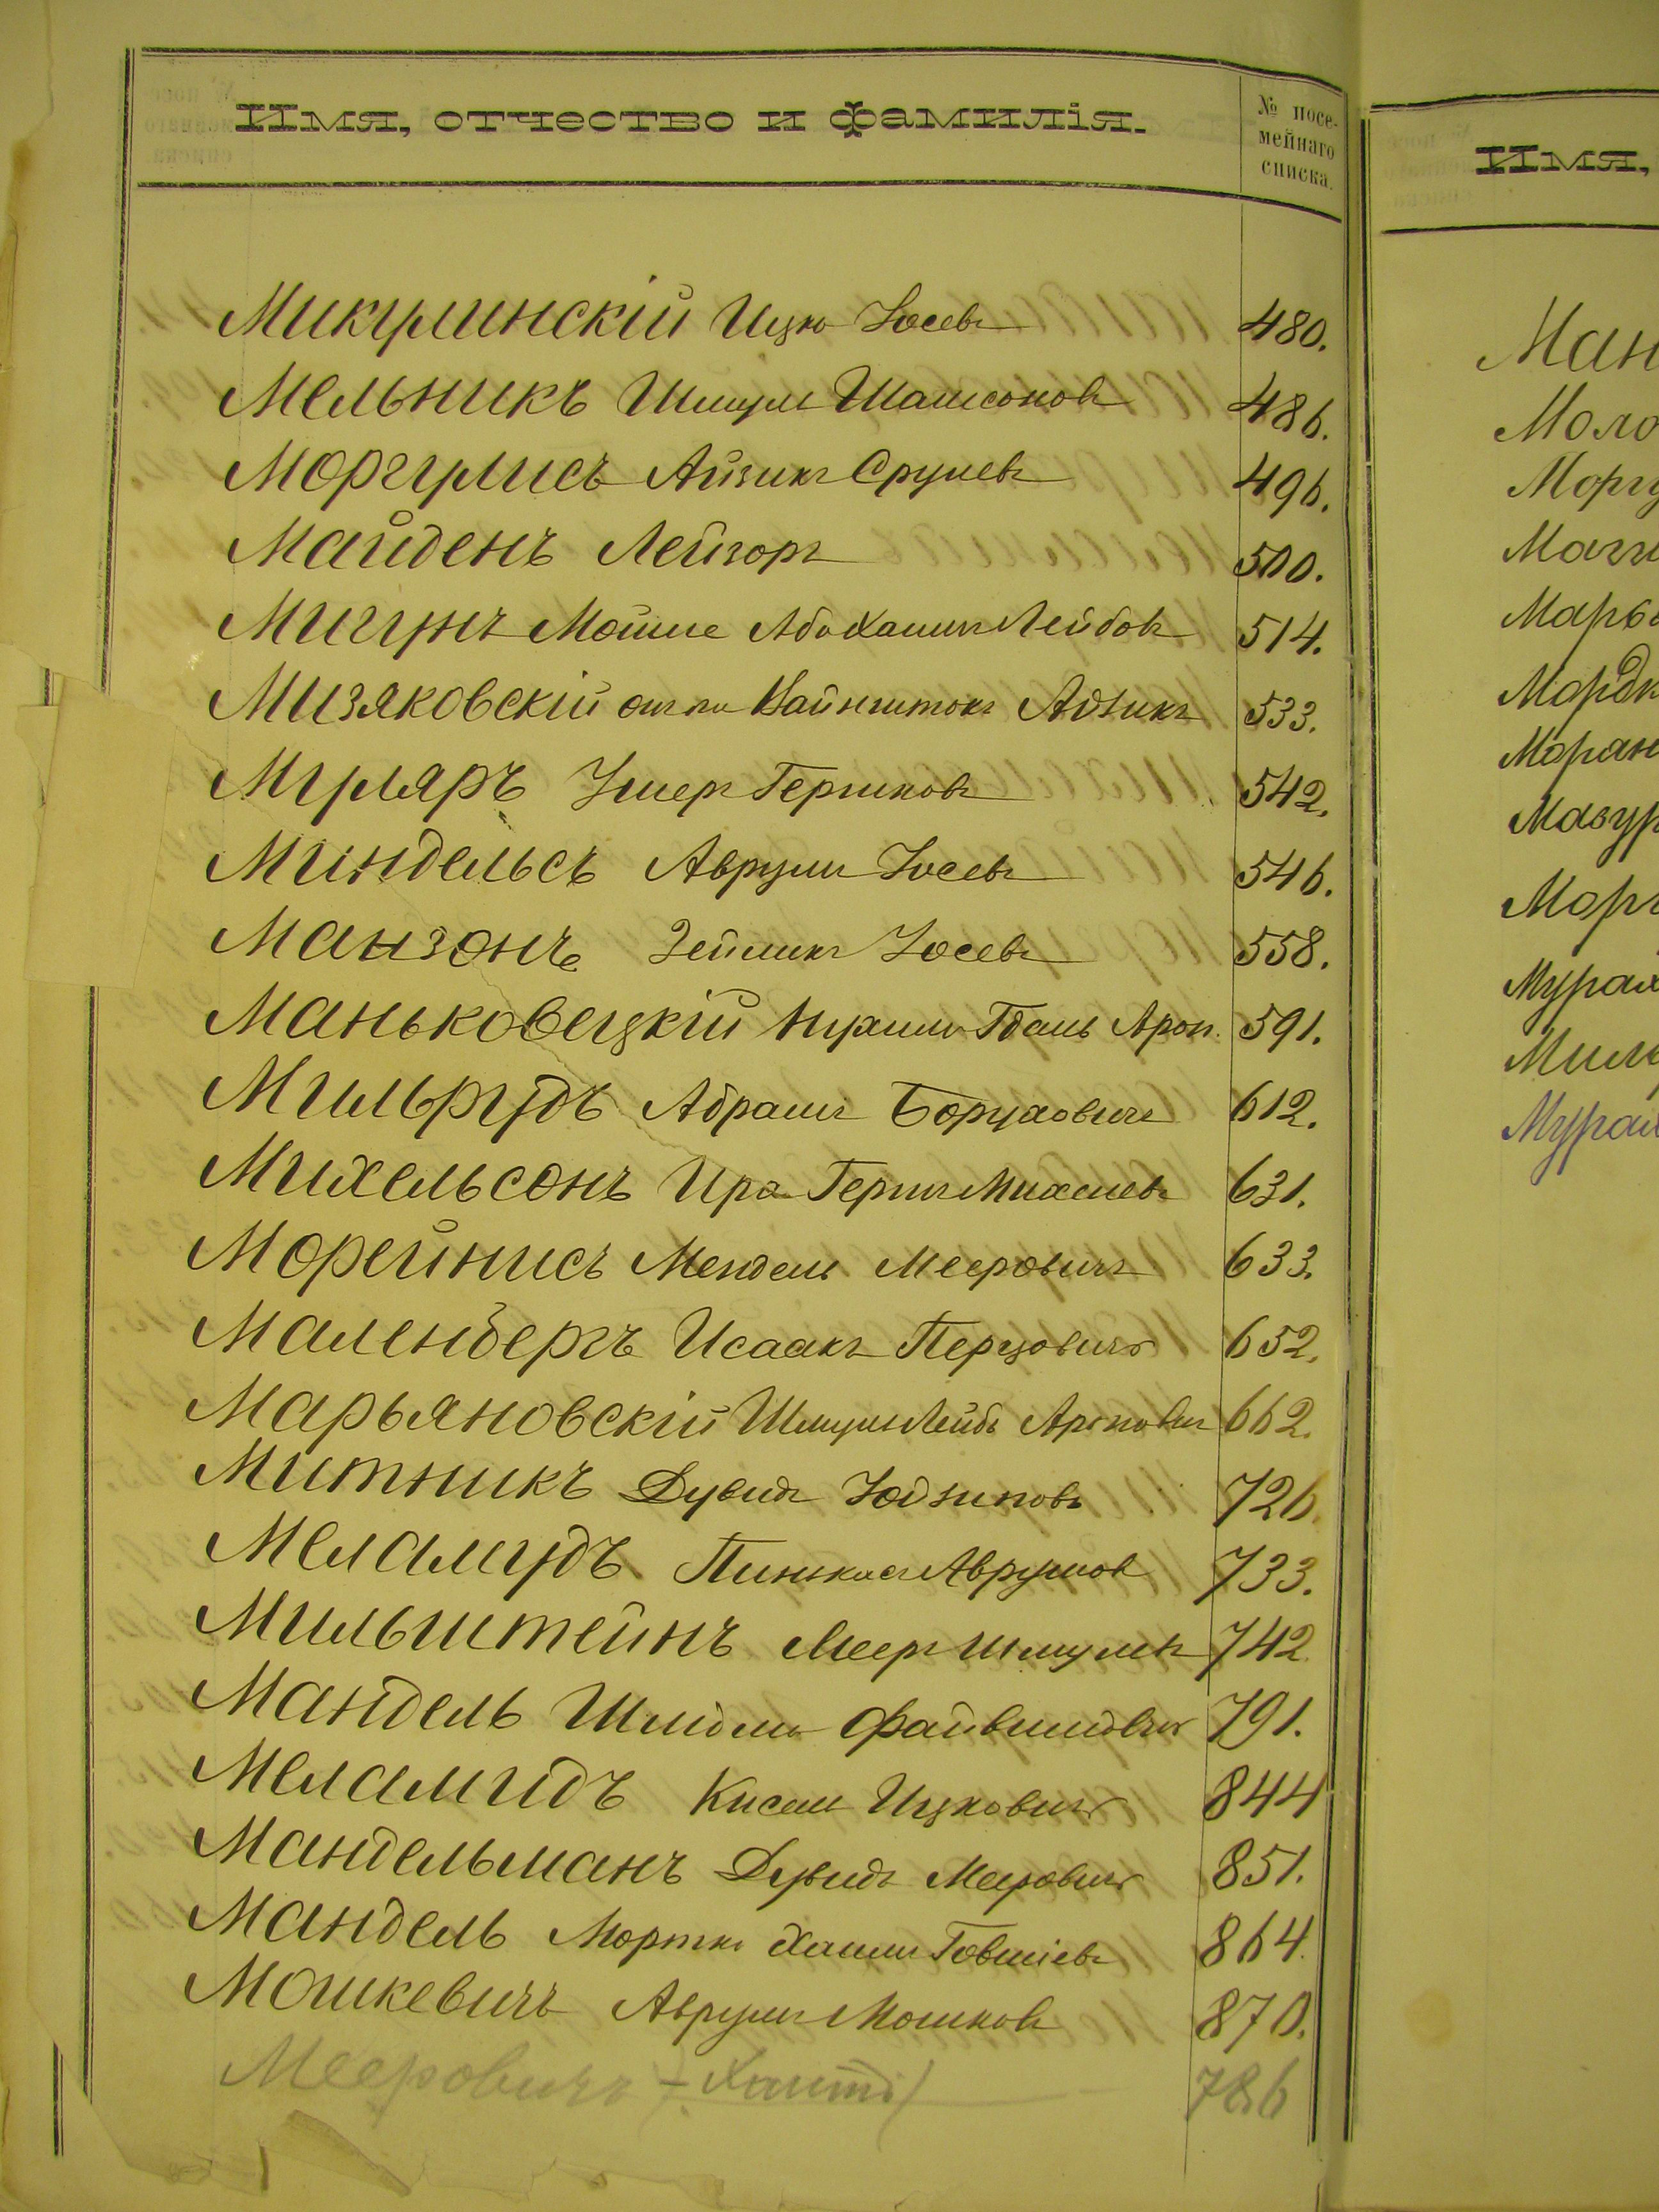 Имя, отчество и фамилія.
№ посе-
мейнаго
списка.
Микулинскій Ицко Іосевъ 480.
Мельникъ Шмуль Шамсоновъ 486.
Моргулисъ Айзикъ Срулевъ 496.
Майденъ Лейзоръ 500.
Мигунъ Мойше Аба Хаимъ Лейбовъ 514.
Мизяковскій онъ же Вайнштокъ Айзикъ 533.
Муляръ Ушеръ Гершковъ 542.
Миндельсъ Аврумъ Іосевъ 546.
Манзонъ Зейликъ Іосевъ 558.
Маньковецкій Нухимъ Гдаль Арон. 591.
Мильрудъ Абрамъ Боруховичъ 612.
Михельсонъ Ира Гершъ Михелевъ 631.
Морейнисъ Мендель Мееровичъ 633.
Маленбергъ Исаакъ Перцовичъ 652.
Марьяновскій Шмуль Лейбъ Ароновичъ 662.
Митникъ Дувидъ Юдковъ 726.
Меламудъ Пинхасъ Аврумов 733.
Мильштейнъ Мееръ Шмулевъ 742
Мандель Шлиома Файвишовичъ 791.
Меламидъ Кисель Ицковичъ 844
Мандельманъ Дувидъ Мееровичъ 851.
Мандель Мортко Хаимъ Говшіевъ 864.
Мошкевичъ Аврумъ Мошковъ 870.
Мееровичъ 786
Имя,
Ман
Моло
Моргу
Марь
Мордк
Моран
Мазур
Мурах
Миль